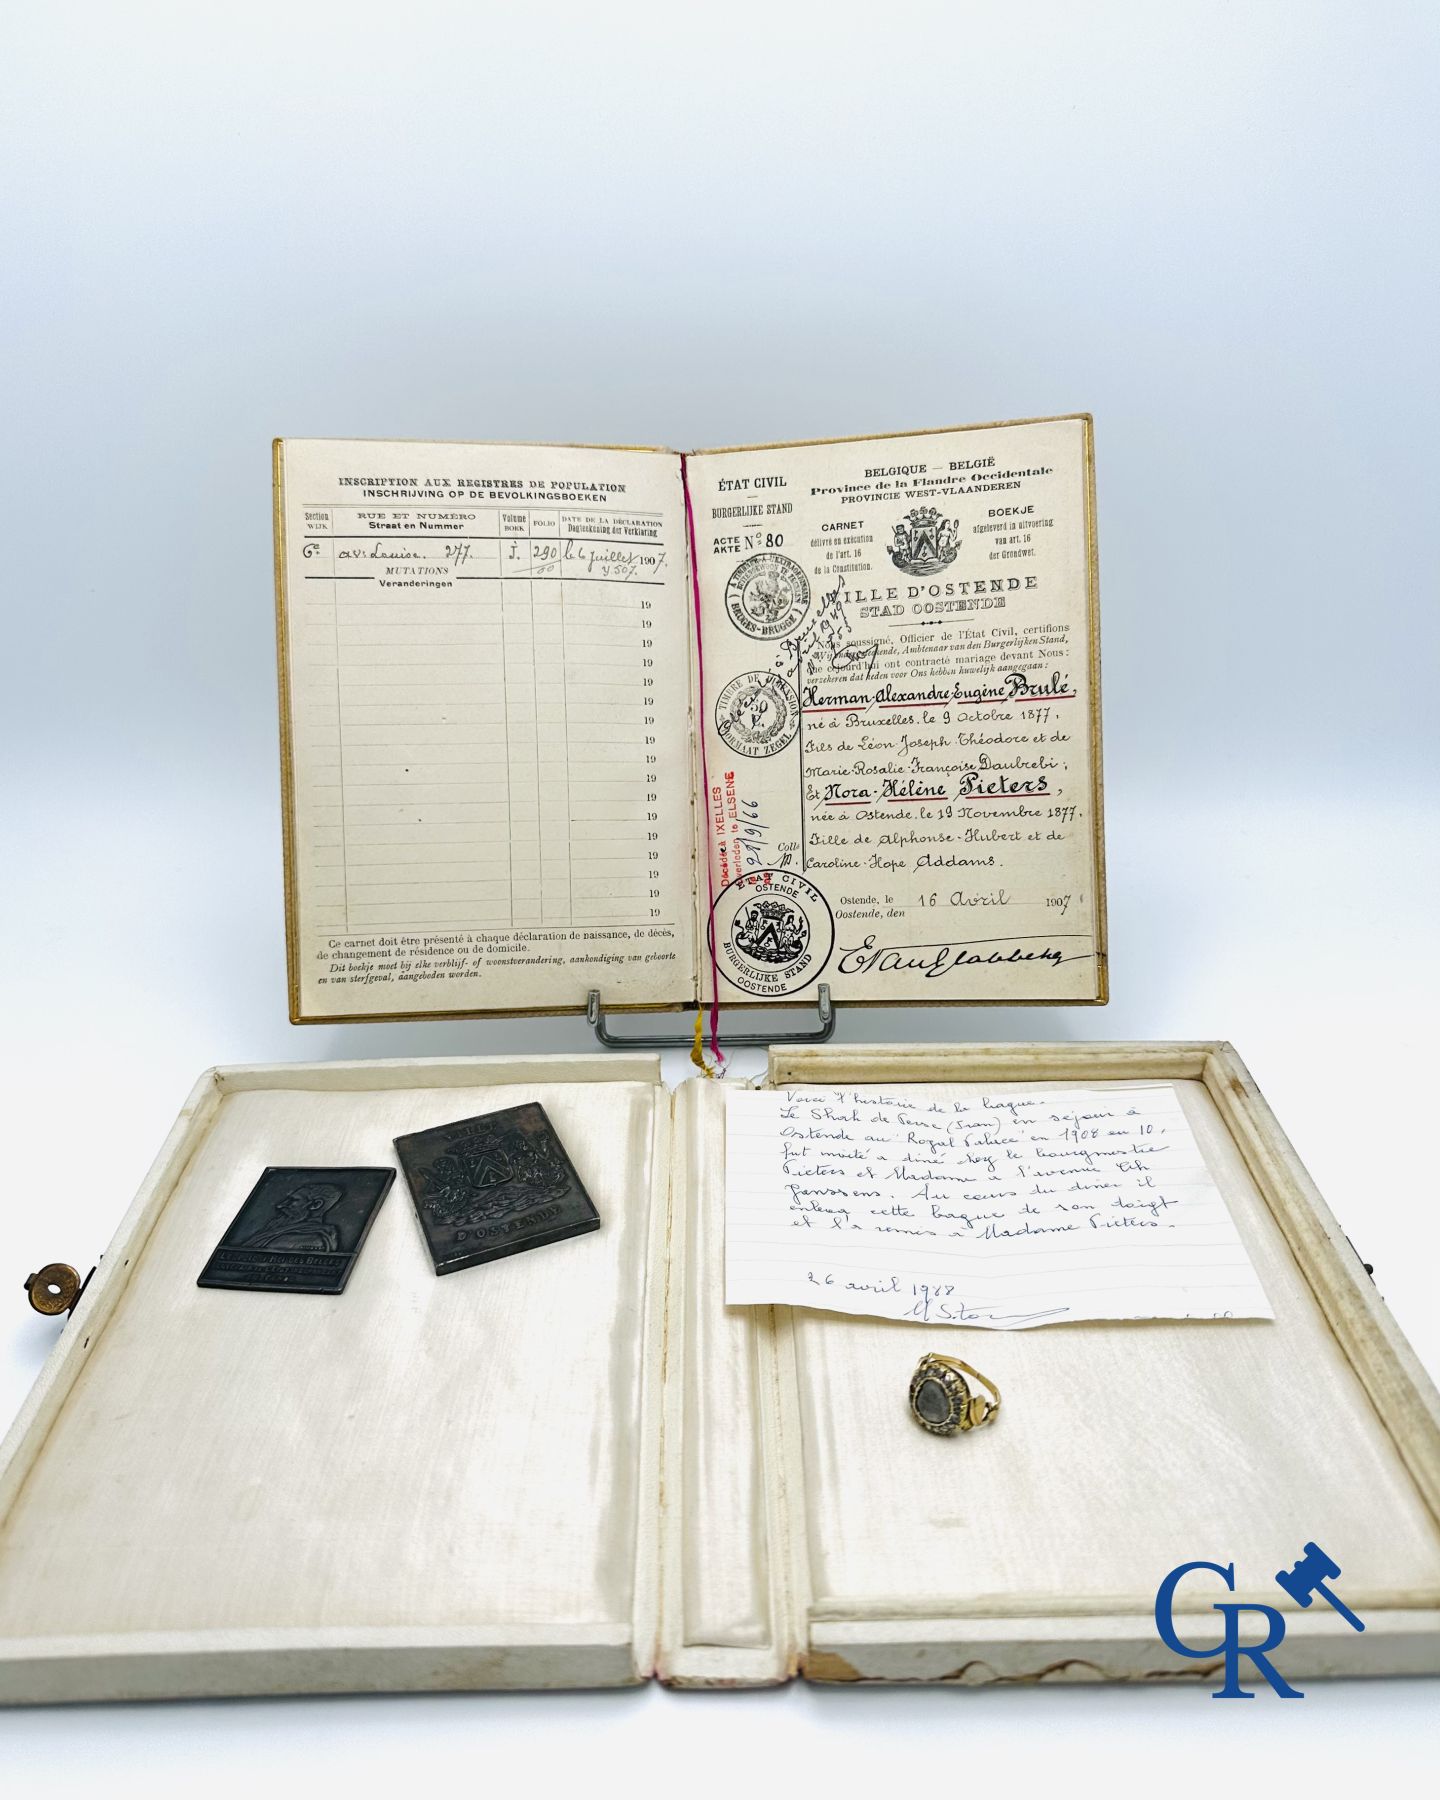 INSCRIPTION AUX REGISTRES DE POPULATION
INSCHRIJVING OP DE BEVOLKINGSBOEKEN
Section
WIJK
RUE ET NUMÉRO
Straat en Nummer
Volume
BOEK
FOLIO
DATE DE LA DÉCLARATION
Dagteekening der Verklaring
6e
ave Louise. 277.
J.
290
le 6 juillet 1907.
MUTATIONS
Veranderingen
19
19
19
19
19
19
19
19
19
19
19
19
19
19
19
19
19
Ce carnet doit être présenté à chaque déclaration de naissance, de décès,
de changement de résidence ou de domicile.
Dit boekje moet bij elke verblijf- of woonstverandering, aankondiging van geboorte
en van sterfgeval, aangeboden worden.
ÉTAT CIVIL
BURGERLIJKE STAND
ACTE
AKTE No 80
BRUGES-BRUGGE
TIMBRE DE DIMENSION
FORMAAT ZEGEL
Décédé à IXELLES
Overleden te ELSENE
21/9/66
ETAT CIVIL
OSTENDE
BURGERLIJKE STAND
OOSTENDE
BELGIQUE — BELGIË
Province de la Flandre Occidentale
PROVINCIE WEST-VLAANDEREN
CARNET
délivré en exécution
de l'art. 16
de la Constitution.
BOEKJE
afgeleverd in uitvoering
van art. 16
der Grondwet.
VILLE D'OSTENDE
STAD OOSTENDE
Nous soussigné, Officier de l'État Civil, certifions
Wij ondergeteekende, Ambtenaar van den Burgerlijken Stand,
que cejourd'hui ont contracté mariage devant Nous :
verzekeren dat heden voor Ons hebben huwelijk aangegaan :
Herman-Alexandre-Eugène Brulé,
né à Bruxelles, le 9 Octobre 1877,
Fils de Léon-Joseph-Théodore et de
Marie-Rosalie-Françoise Daubrebi ;
Et Nora-Hélène Pieters,
née à Ostende, le 19 Novembre 1877,
Fille de Alphonse-Hubert et de
Caroline-Hope Addams.
Ostende, le
Oostende, den 16 Avril 1907
Voici l'histoire de la bague.
Le Shah de Perse (Iran) en séjour à
Ostende au "Royal Palace" en 1908 ou 10,
fut invité a diné chez le bourgmestre
Pieters et Madame a l'avenue Th
Janssens. Au cours du diner il
enleva cette bague de son doigt
et l'a remis a Madame Pieters.
26 avril 1988
VILLE
D'OSTENDE
CR